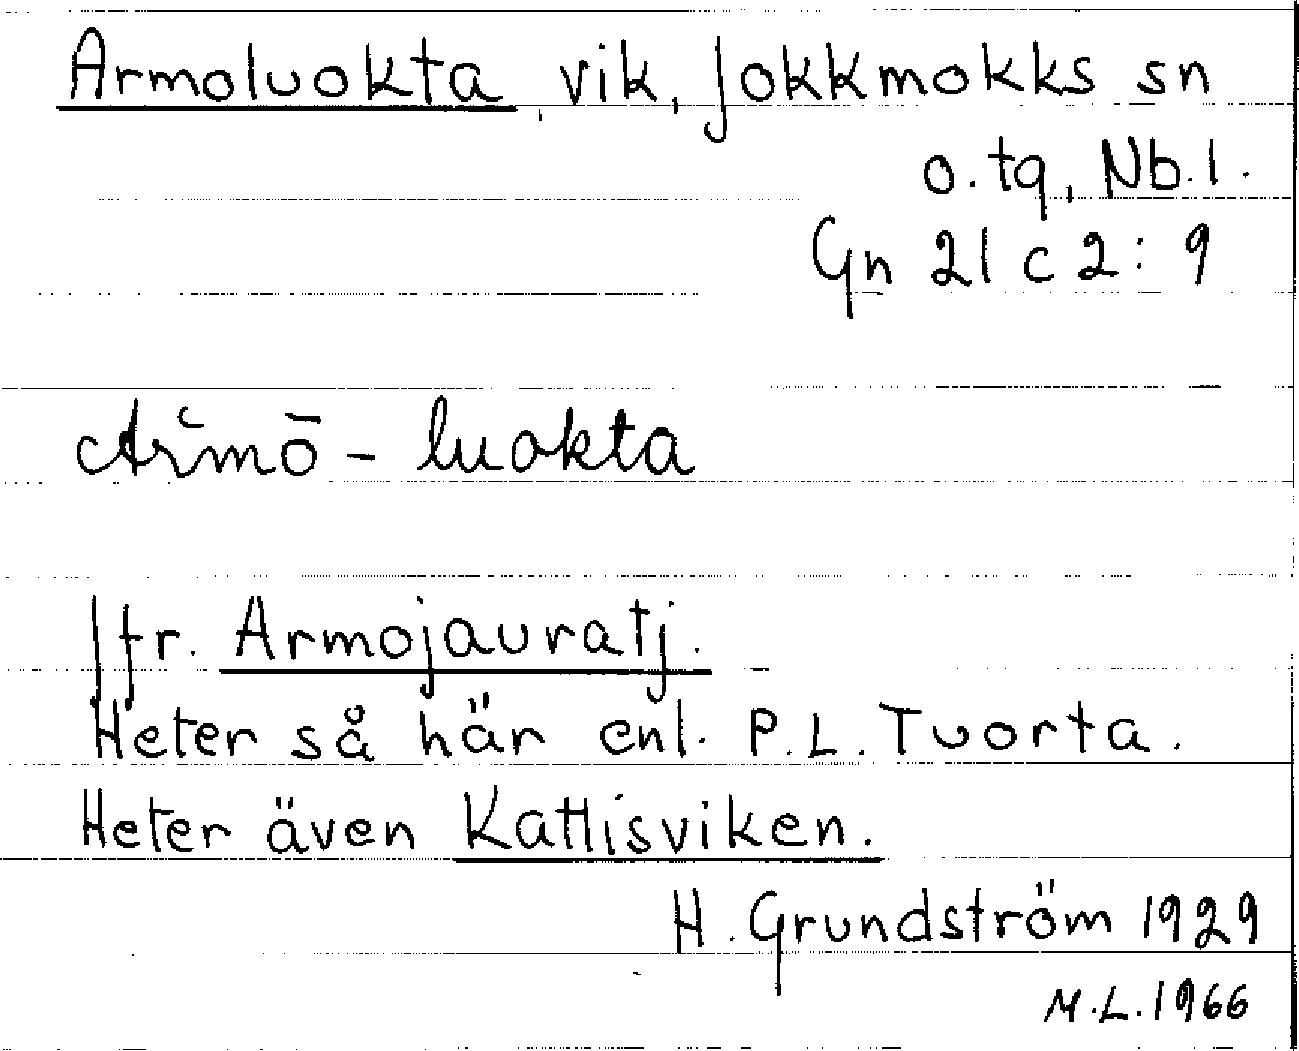 Armoluokta, vik, Jokkmokks sn
o. tq, Nb. l.
Gn 21 c 2: 9
Ar̆mō - luokta
Jfr. Armojauratj.
Heter så här enl. P. L. Tuorta.
Heter även Kattisviken.
H. Grundström 1929
M. L. 1966